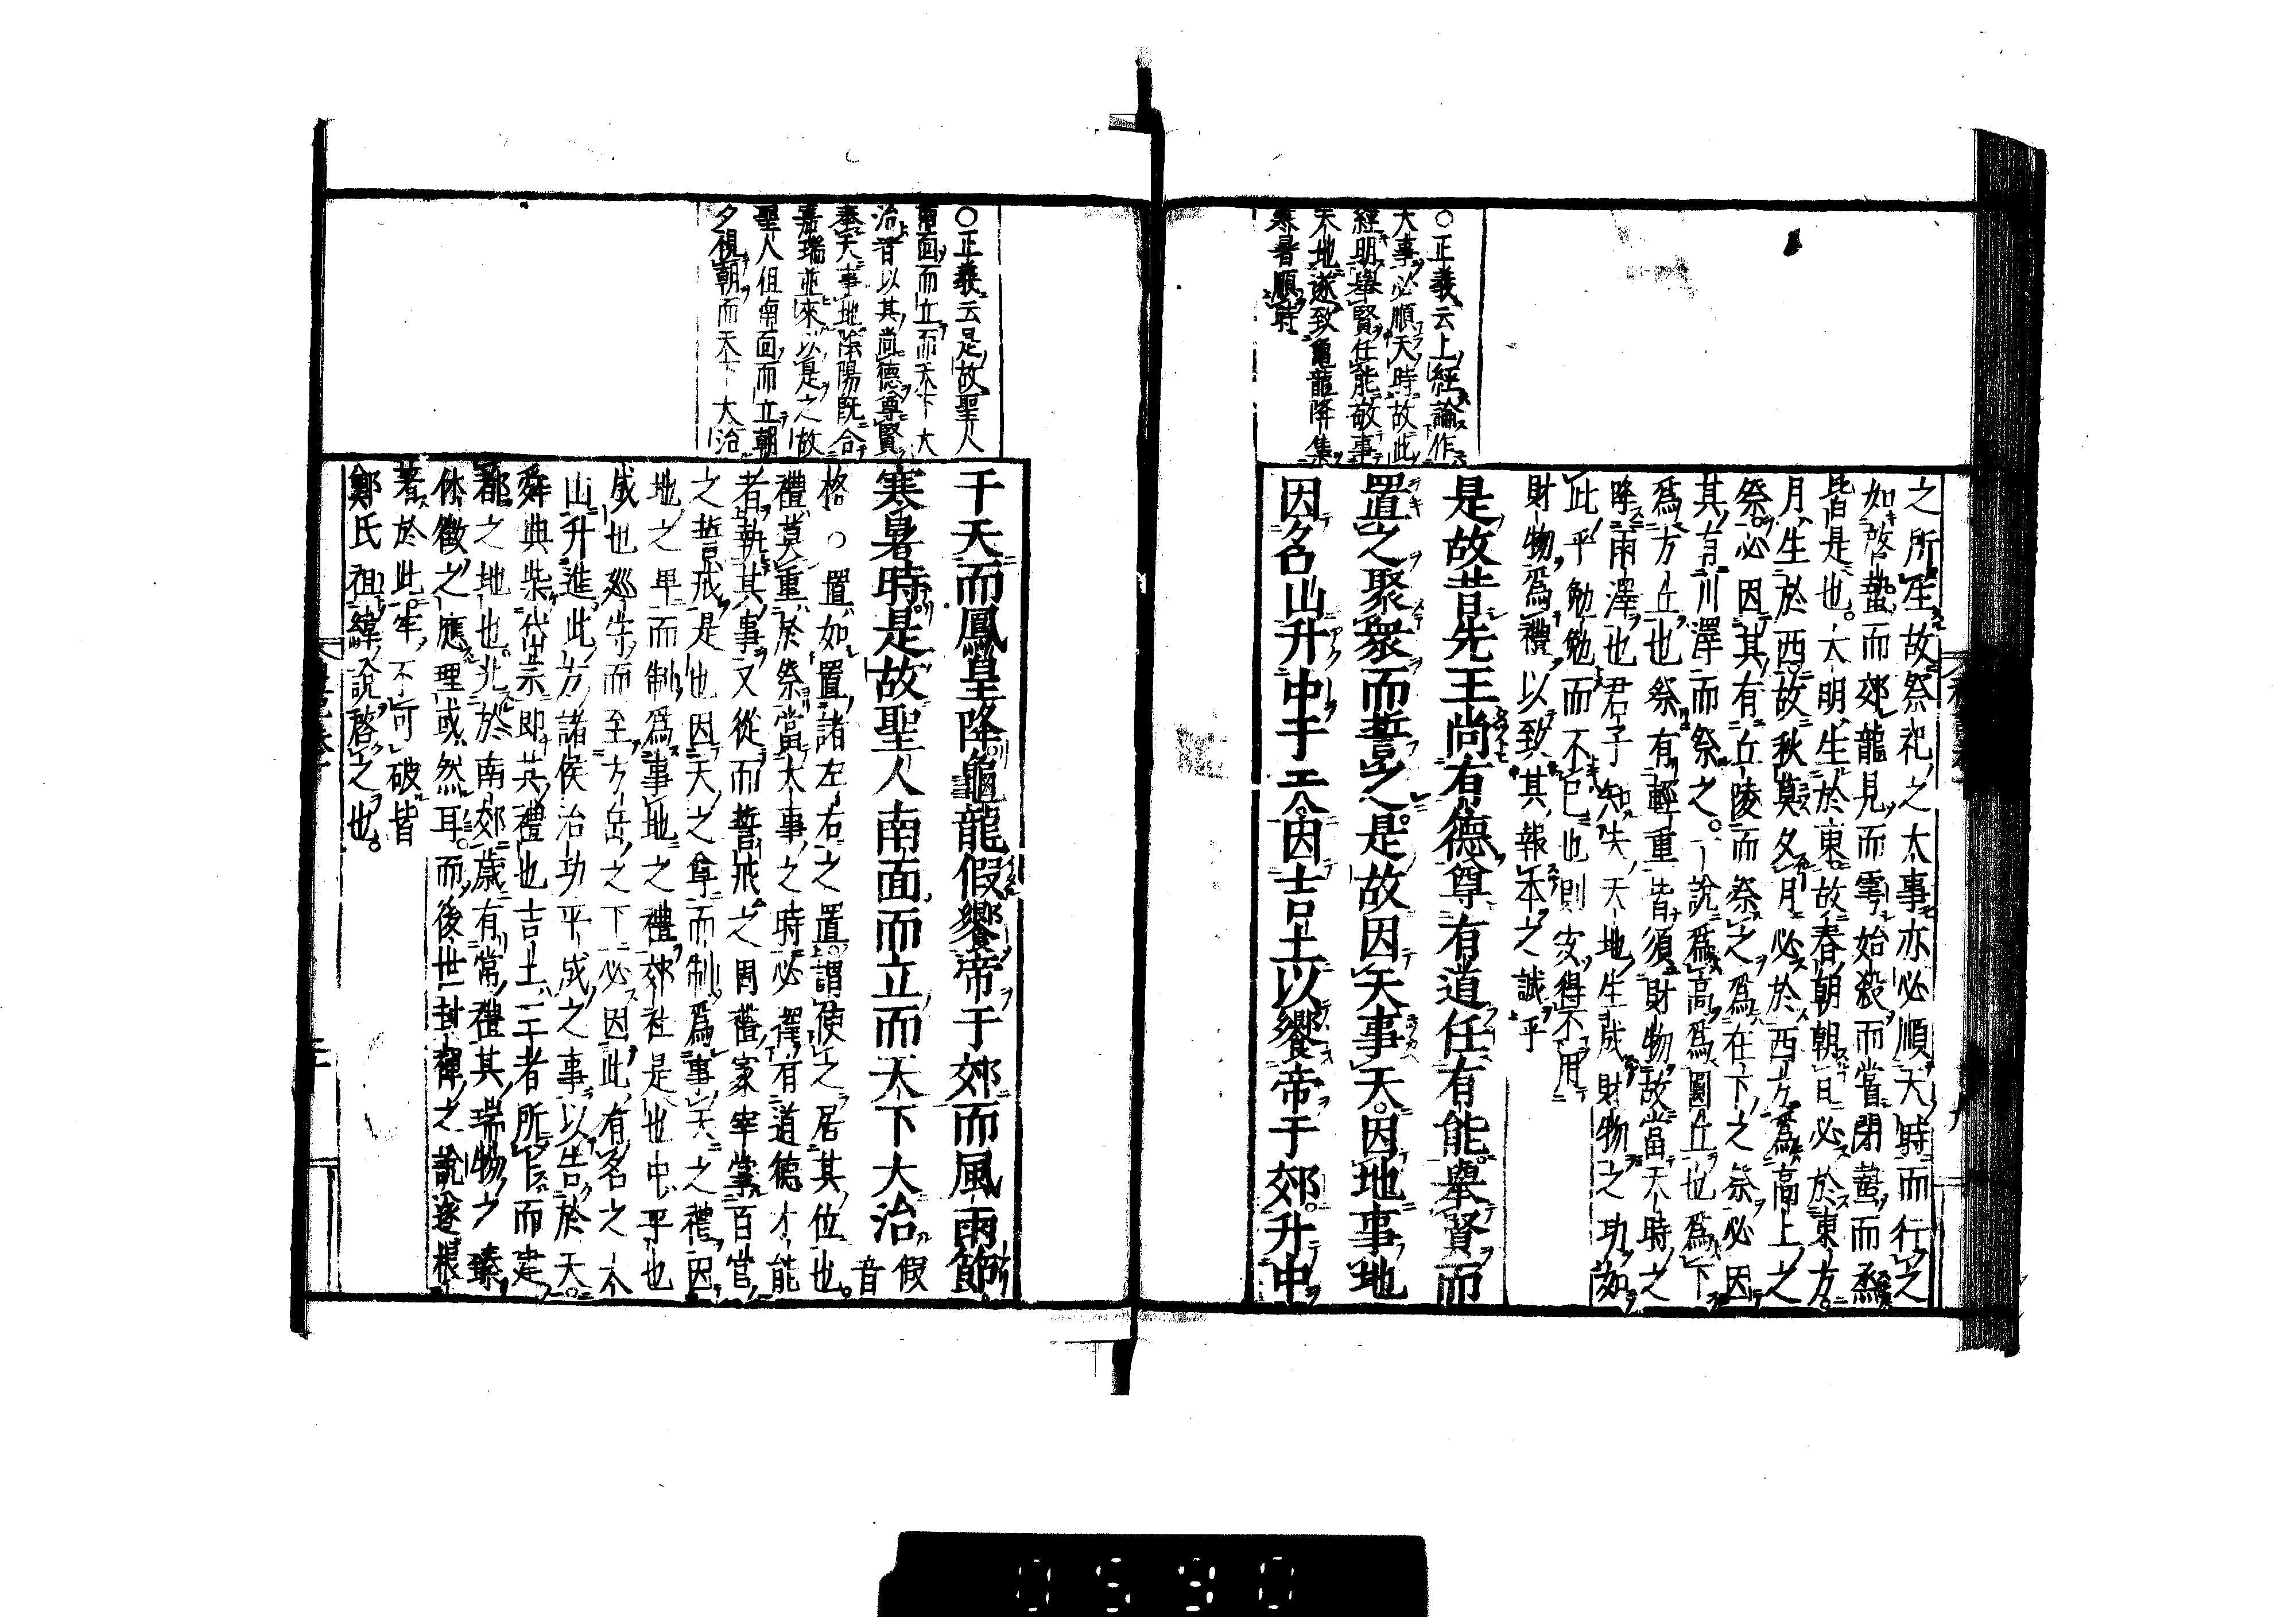 ○正義云上經論作
大事必順天時故此
經明舉賢任能敬事
天地遂致龜龍降集
寒暑順時
之所生故祭祀之大事亦必順天時而行之
如啓蟄而郊龍見而雩始殺而嘗閉蟄而烝
皆是也大明生於東故春朝朝日必於東方
月生於西故秋莫夕月必於西方爲高上之
祭必因其有丘陵而祭之爲在下之祭必因
其有川澤而祭之一說爲高爲圜丘也爲下
爲方丘也祭有輕重皆須財物故當天時之
降雨澤也君子知夫天地生成財物之功如
此乎勉勉而不已也則安得不用
財物爲禮以致其報本之誠乎
是故昔先王尚有德尊有道任有能舉賢而
置之聚衆而誓之是故因天事天因地事地
因名山升中于天因吉土以饗帝于郊升中
○正義云是故聖人
南面而立而天下大
治者以其尚德尊賢
奉天事地陰陽既合
嘉瑞並來以是之故
聖人但南面而立朝
夕視朝而天下大治
于天而鳳皇降龜龍假饗帝于郊而風雨節
寒暑時是故聖人南面而立而天下大治 假音
格○置如置諸左右之置謂使之居其位也
禮莫重於祭當大事之時必擇有道德才能
者執其事又從而誓戒之周禮冢宰掌百官
之誓戒是也因天之尊而制爲事天之禮因
地之卑而制爲事地之禮郊社是也中平也
成也巡守而至方岳之下必因此有名之大
山升進此方諸侯治功平成之事以告於天
舜典柴岱宗即其禮也吉土王者所卜而建
都之地也兆於南郊歲有常禮其瑞物之臻
休徵之應理或然耳而後世封禪之說遂根
著於此牢不可破皆
鄭氏祖緯說啓之也
0590